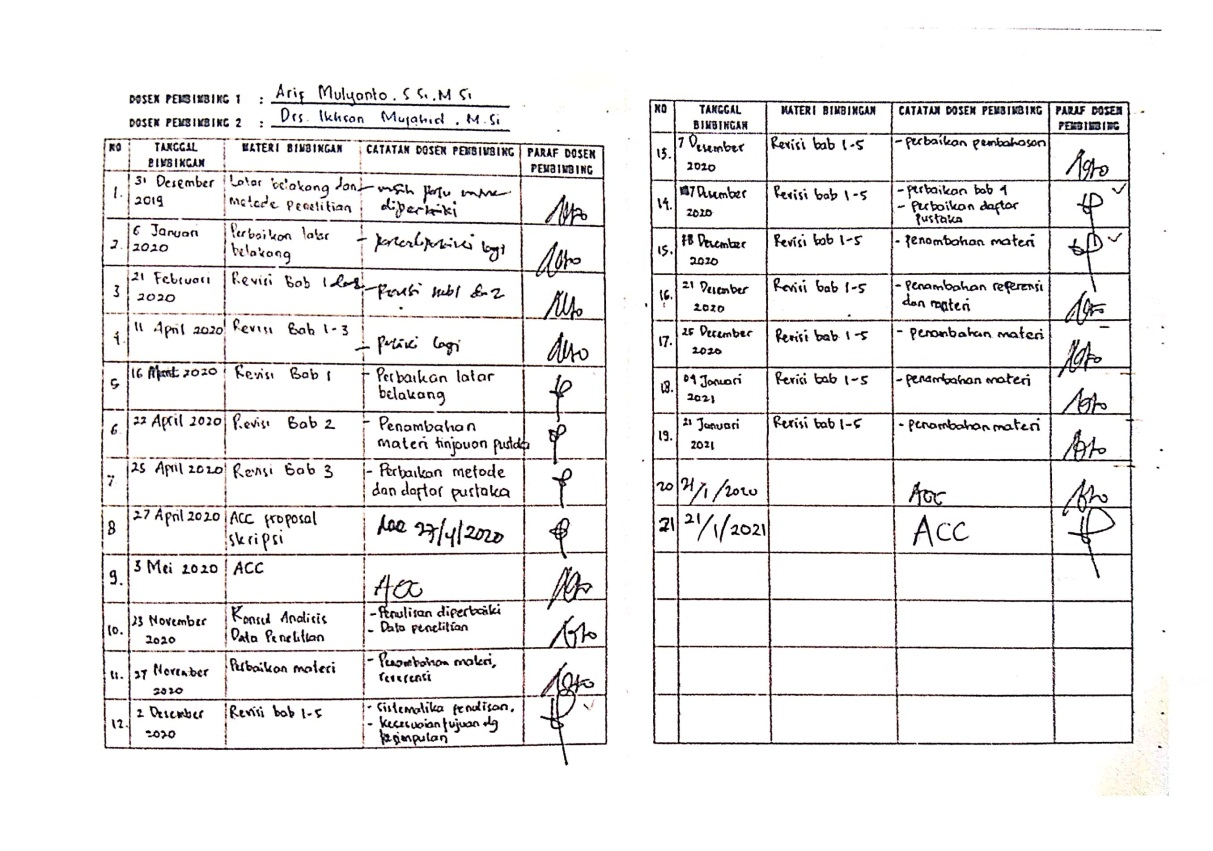 DOSEN PEMBIMBING 1 : Arif Mulyanto, S Si, M Si
DOSEN PEMBIMBING 2 : Drs. Ikhsan Mujahid, M.Si
NO TANGGAL BIMBINGAN MATERI BIMBINGAN CATATAN DOSEN PEMBIMBING PARAF DOSEN PEMBIMBING
1. 31 Desember Latar belakang dan - masih perlu
2019 metode penelitian diperbaiki
2. 6 Januari Perbaikan latar - lagi
2020 belakang
3 21 Februari Revisi Bab 1 - 2
2020
4. 11 April 2020 Revisi Bab 1-3
- lagi
5 16 2020 Revisi Bab 1 - Perbaikan latar
belakang
6. 22 April 2020 Revisi Bab 2 - Penambahan
materi tinjauan pustaka
7 25 April 2020 Revisi Bab 3 - Perbaikan metode
dan daftar pustaka
8 27 April 2020 ACC proposal Acc 27/4/2020
skripsi
9. 3 Mei 2020 ACC ACC
10. 23 November Konsul Analisis - Penulisan diperbaiki
2020 Data Penelitian - Data penelitian
11. 27 November Perbaikan materi - Penambahan materi,
2020 referensi
12. 2 Desember Revisi bab 1-5 - Sistematika penulisan,
2020 - kesesuaian tujuan dg
kesimpulan
NO TANGGAL BIMBINGAN MATERI BIMBINGAN CATATAN DOSEN PEMBIMBING PARAF DOSEN PEMBIMBING
13. 7 Desember Revisi bab 1-5 - perbaikan pembahasan
2020
14. Desember Revisi bab 1-5 - perbaikan bab 4
2020 - Perbaikan daftar
pustaka
15. 18 Desember Revisi bab 1-5 - penambahan materi
2020
16. 21 Desember Revisi bab 1-5 - Penambahan referensi
2020 dan materi
17. 25 Desember Revisi bab 1-5 - penambahan materi
2020
18. 04 Januari Revisi bab 1-5 - penambahan materi
2021
19. 21 Januari Revisi bab 1-5 - penambahan materi
2021
20 21/1/2020 ACC
21 21/1/2021 ACC